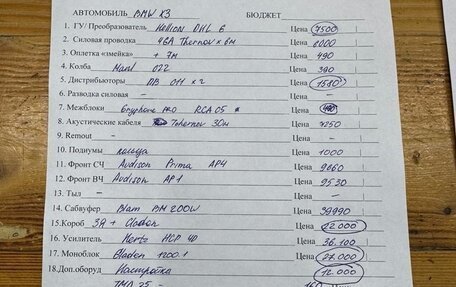 АВТОМОБИЛЬ BMW X3 БЮДЖЕТ
1. ГУ/ Преобразователь DHL 6 Цена 7500
2. Силовая проводка 4GA Tchernov x 6м Цена 8000
3. Оплетка «змейка» + 7м Цена 490
4. Колба Mard 022 Цена 390
5. Дистрибьюторы DB 011 x 2 Цена 1580
6. Разводка силовая – Цена
7. Межблоки Gryphone PRO RCA 05 Цена
8. Акустические кабеля Tchernov 30м Цена 7250
9. Remout – Цена
10. Подиумы кольца Цена 1000
11. Фронт СЧ Audison Prima AP4 Цена 9860
12. Фронт ВЧ Audison AP1 Цена 9530
13. Тыл – Цена
14. Сабвуфер Blam BM 200W Цена 39990
15.Короб ЗЯ + Цена 22000
16. Усилитель Hertz HCP 4D Цена 36.100
17. Моноблок 1200.1 Цена 27.000
18.Доп.оборуд Настройка Цена 12.000